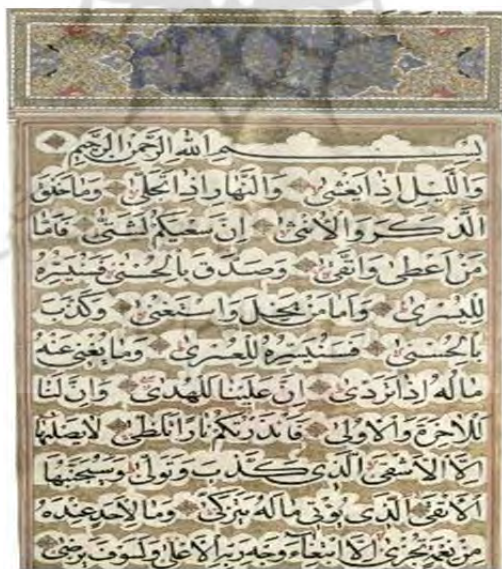 بِسْمِ اللهِ الرَّحْمنِ الرَّحِيمِ
وَالَّيْلِ اِذَا يَغْشى وَالنَّهارِ اِذَا تَجَلّى وَمَا خَلَقَ
الذَّكَرَ وَالْاُنْثى اِنَّ سَعْيَكُمْ لَشَتّى فَاَمَّا
مَنْ اَعْطى وَاتَّقى وَصَدَّقَ بِالْحُسْنى فَسَنُيَسِّرُهُ
لِلْيُسْرى وَاَمَّا مَنْ بَخِلَ وَاسْتَغْنى وَكَذَّبَ
بِالْحُسْنى فَسَنُيَسِّرُهُ لِلْعُسْرى وَمَا يُغْنِي عَنْهُ
مَالُهُ اِذَا تَرَدّى اِنَّ عَلَيْنَا لَلْهُدى وَاِنَّ لَنَا
لَلْاخِرَةَ وَالْاُولى فَاَنْذَرْتُكُمْ نَارًا تَلَظّى لَا يَصْليهَا
اِلَّا الْاَشْقَى الَّذِي كَذَّبَ وَتَوَلّى وَسَيُجَنَّبُهَا
الْاَتْقَى الَّذِي يُؤْتِي مَالَهُ يَتَزَكّى وَمَا لِاَحَدٍ عِنْدَهُ
مِنْ نِعْمَةٍ تُجْزى اِلَّا ابْتِغَاءَ وَجْهِ رَبِّهِ الْاَعْلى وَلَسَوْفَ يَرْضى